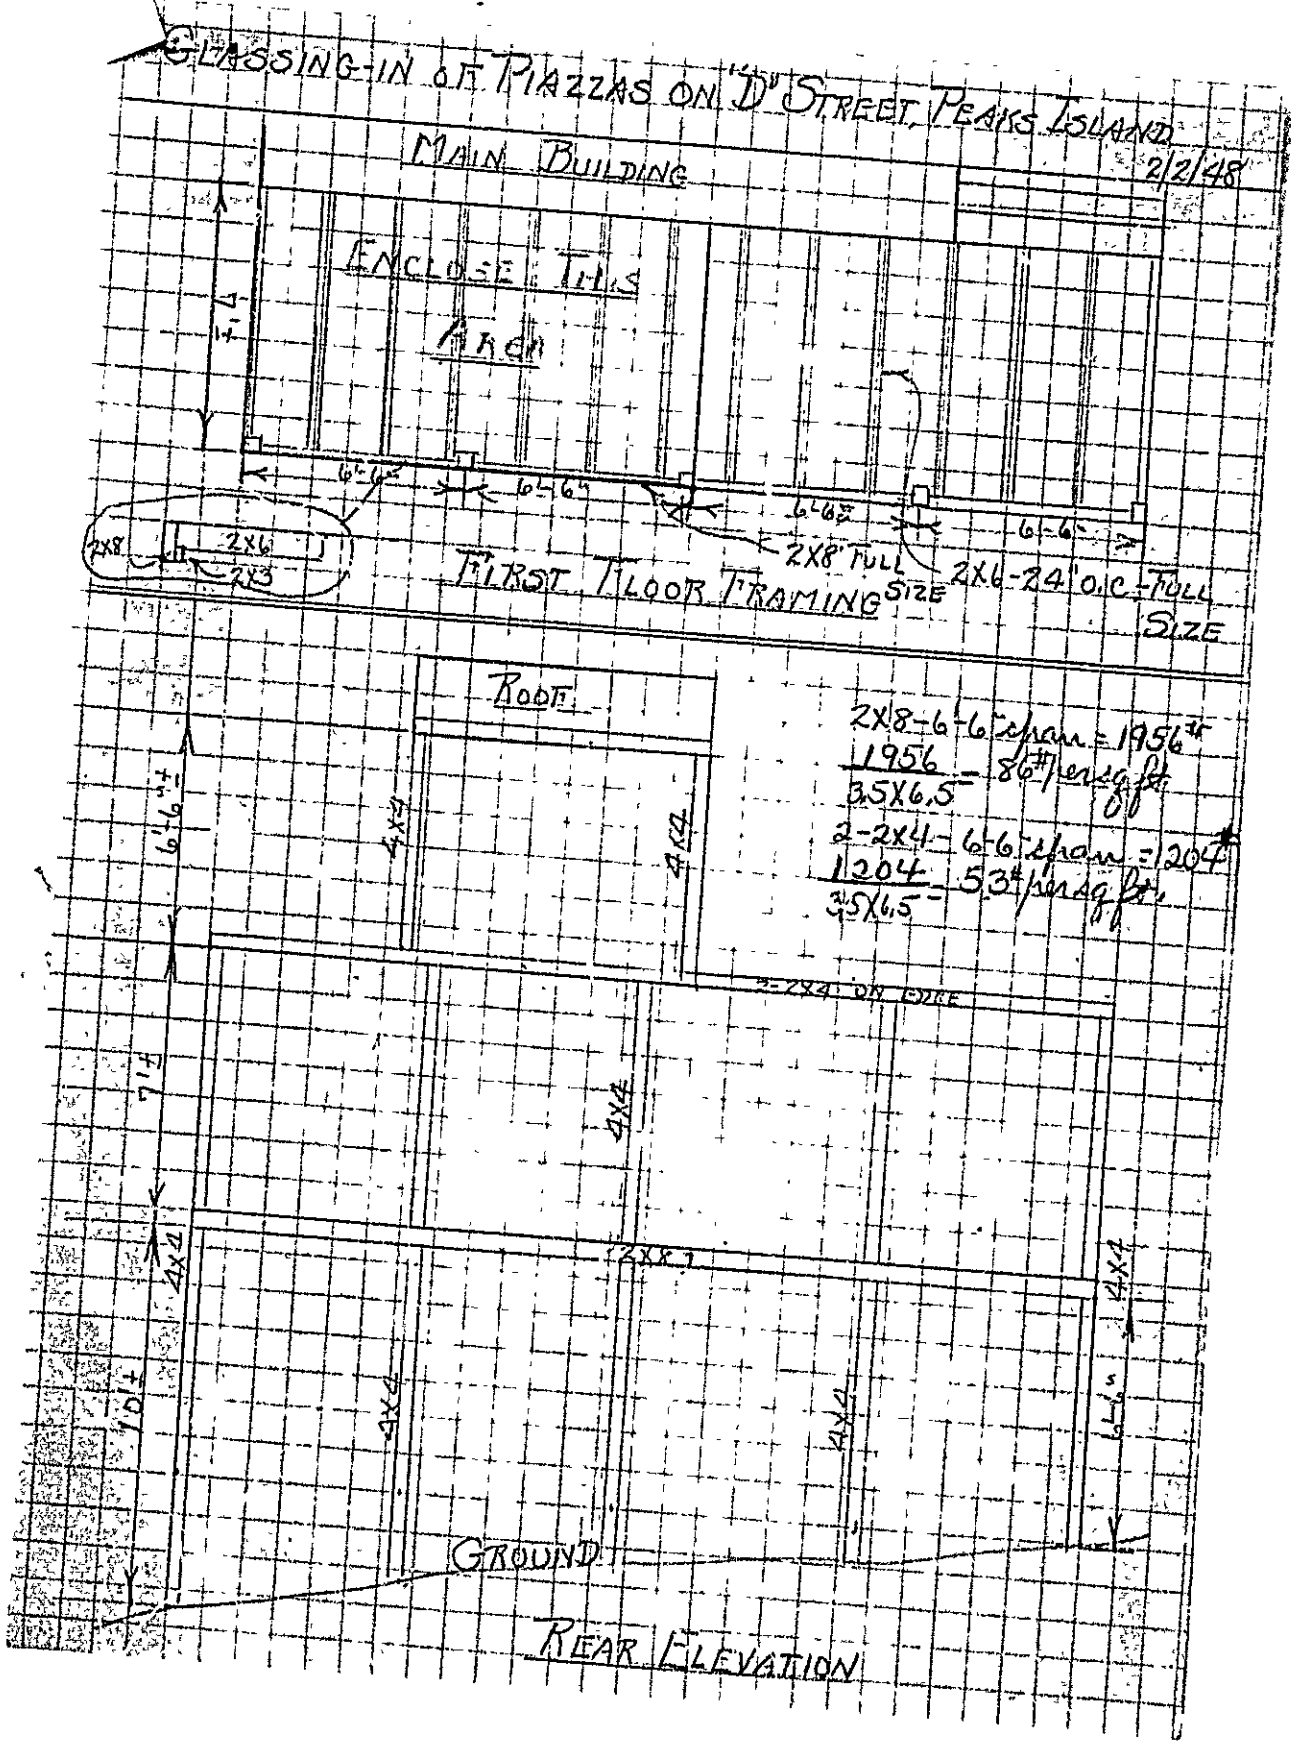 GLASSING-IN OF PIAZZAS ON "D" STREET, PEAKS ISLAND
2/2/48
MAIN BUILDING
ENCLOSE THIS
AREA
7'±
6'-6"
6'-6"
6'-6"
6'-6"
2X8
2X6
2X3
2X8 FULL
SIZE
2X6-24" O.C.-FULL
SIZE
FIRST FLOOR FRAMING
ROOF
2X8-6'-6" span = 1956#
1956
3.5X6.5 = 86# per sq ft.
2-2X4-6'-6" span = 1204#
1204
3.5X6.5 = 53# per sq ft.
6'-6"±
4X4
4X4
2-2X4 ON EDGE
7'±
4X4
4X4
2X8
4X4
10'±
4X4
4X4
6'-6"
GROUND
REAR ELEVATION